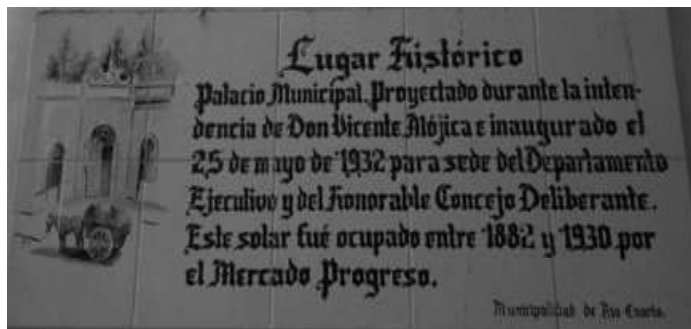 Lugar Histórico
Palacio Municipal. Proyectado durante la inten-
dencia de Don Vicente Mójica e inaugurado el
25 de mayo de 1932 para sede del Departamento
Ejecutivo y del Honorable Concejo Deliberante.
Este solar fué ocupado entre 1882 y 1930 por
el Mercado Progreso.
Municipalidad de Río Cuarto.